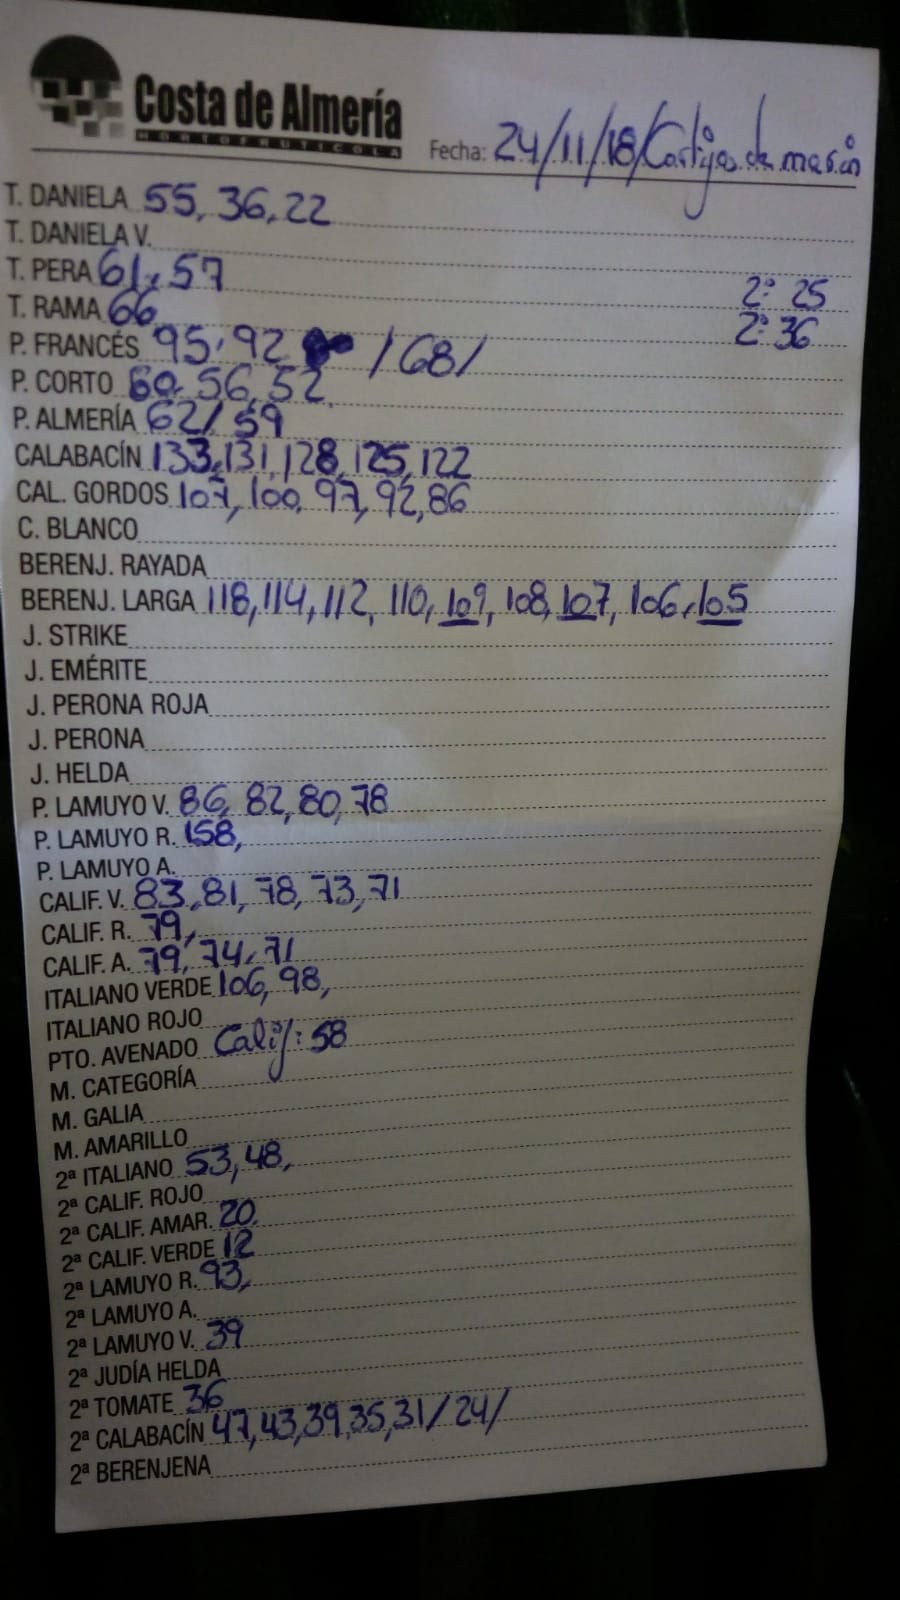 Costa de Almería
HORTOFRUTICOLA
Fecha: 24/11/18/Cortijos de marin
T. DANIELA 55, 36, 22
T. DANIELA V.
T. PERA 61, 57 2º 25
T. RAMA 66 2º 36
P. FRANCÉS 95, 92 /68/
P. CORTO 60, 56, 52
P. ALMERÍA 62/ 59
CALABACÍN 133, 131, 128, 125, 122
CAL. GORDOS 107, 100, 97, 92, 86
C. BLANCO
BERENJ. RAYADA
BERENJ. LARGA 118, 114, 112, 110, 109, 108, 107, 106, 105
J. STRIKE
J. EMÉRITE
J. PERONA ROJA
J. PERONA
J. HELDA
P. LAMUYO V. 86, 82, 80, 78
P. LAMUYO R. 158,
P. LAMUYO A.
CALIF. V. 83, 81, 78, 73, 71
CALIF. R. 79,
CALIF. A. 79, 74, 71
ITALIANO VERDE 106, 98,
ITALIANO ROJO
PTO. AVENADO Calif: 58
M. CATEGORÍA
M. GALIA
M. AMARILLO
2ª ITALIANO 53, 48,
2ª CALIF. ROJO
2ª CALIF. AMAR. 20,
2ª CALIF. VERDE 12
2ª LAMUYO R. 93,
2ª LAMUYO A.
2ª LAMUYO V. 39
2ª JUDÍA HELDA
2ª TOMATE 36
2ª CALABACÍN 47, 43, 39, 35, 31/ 24/
2ª BERENJENA